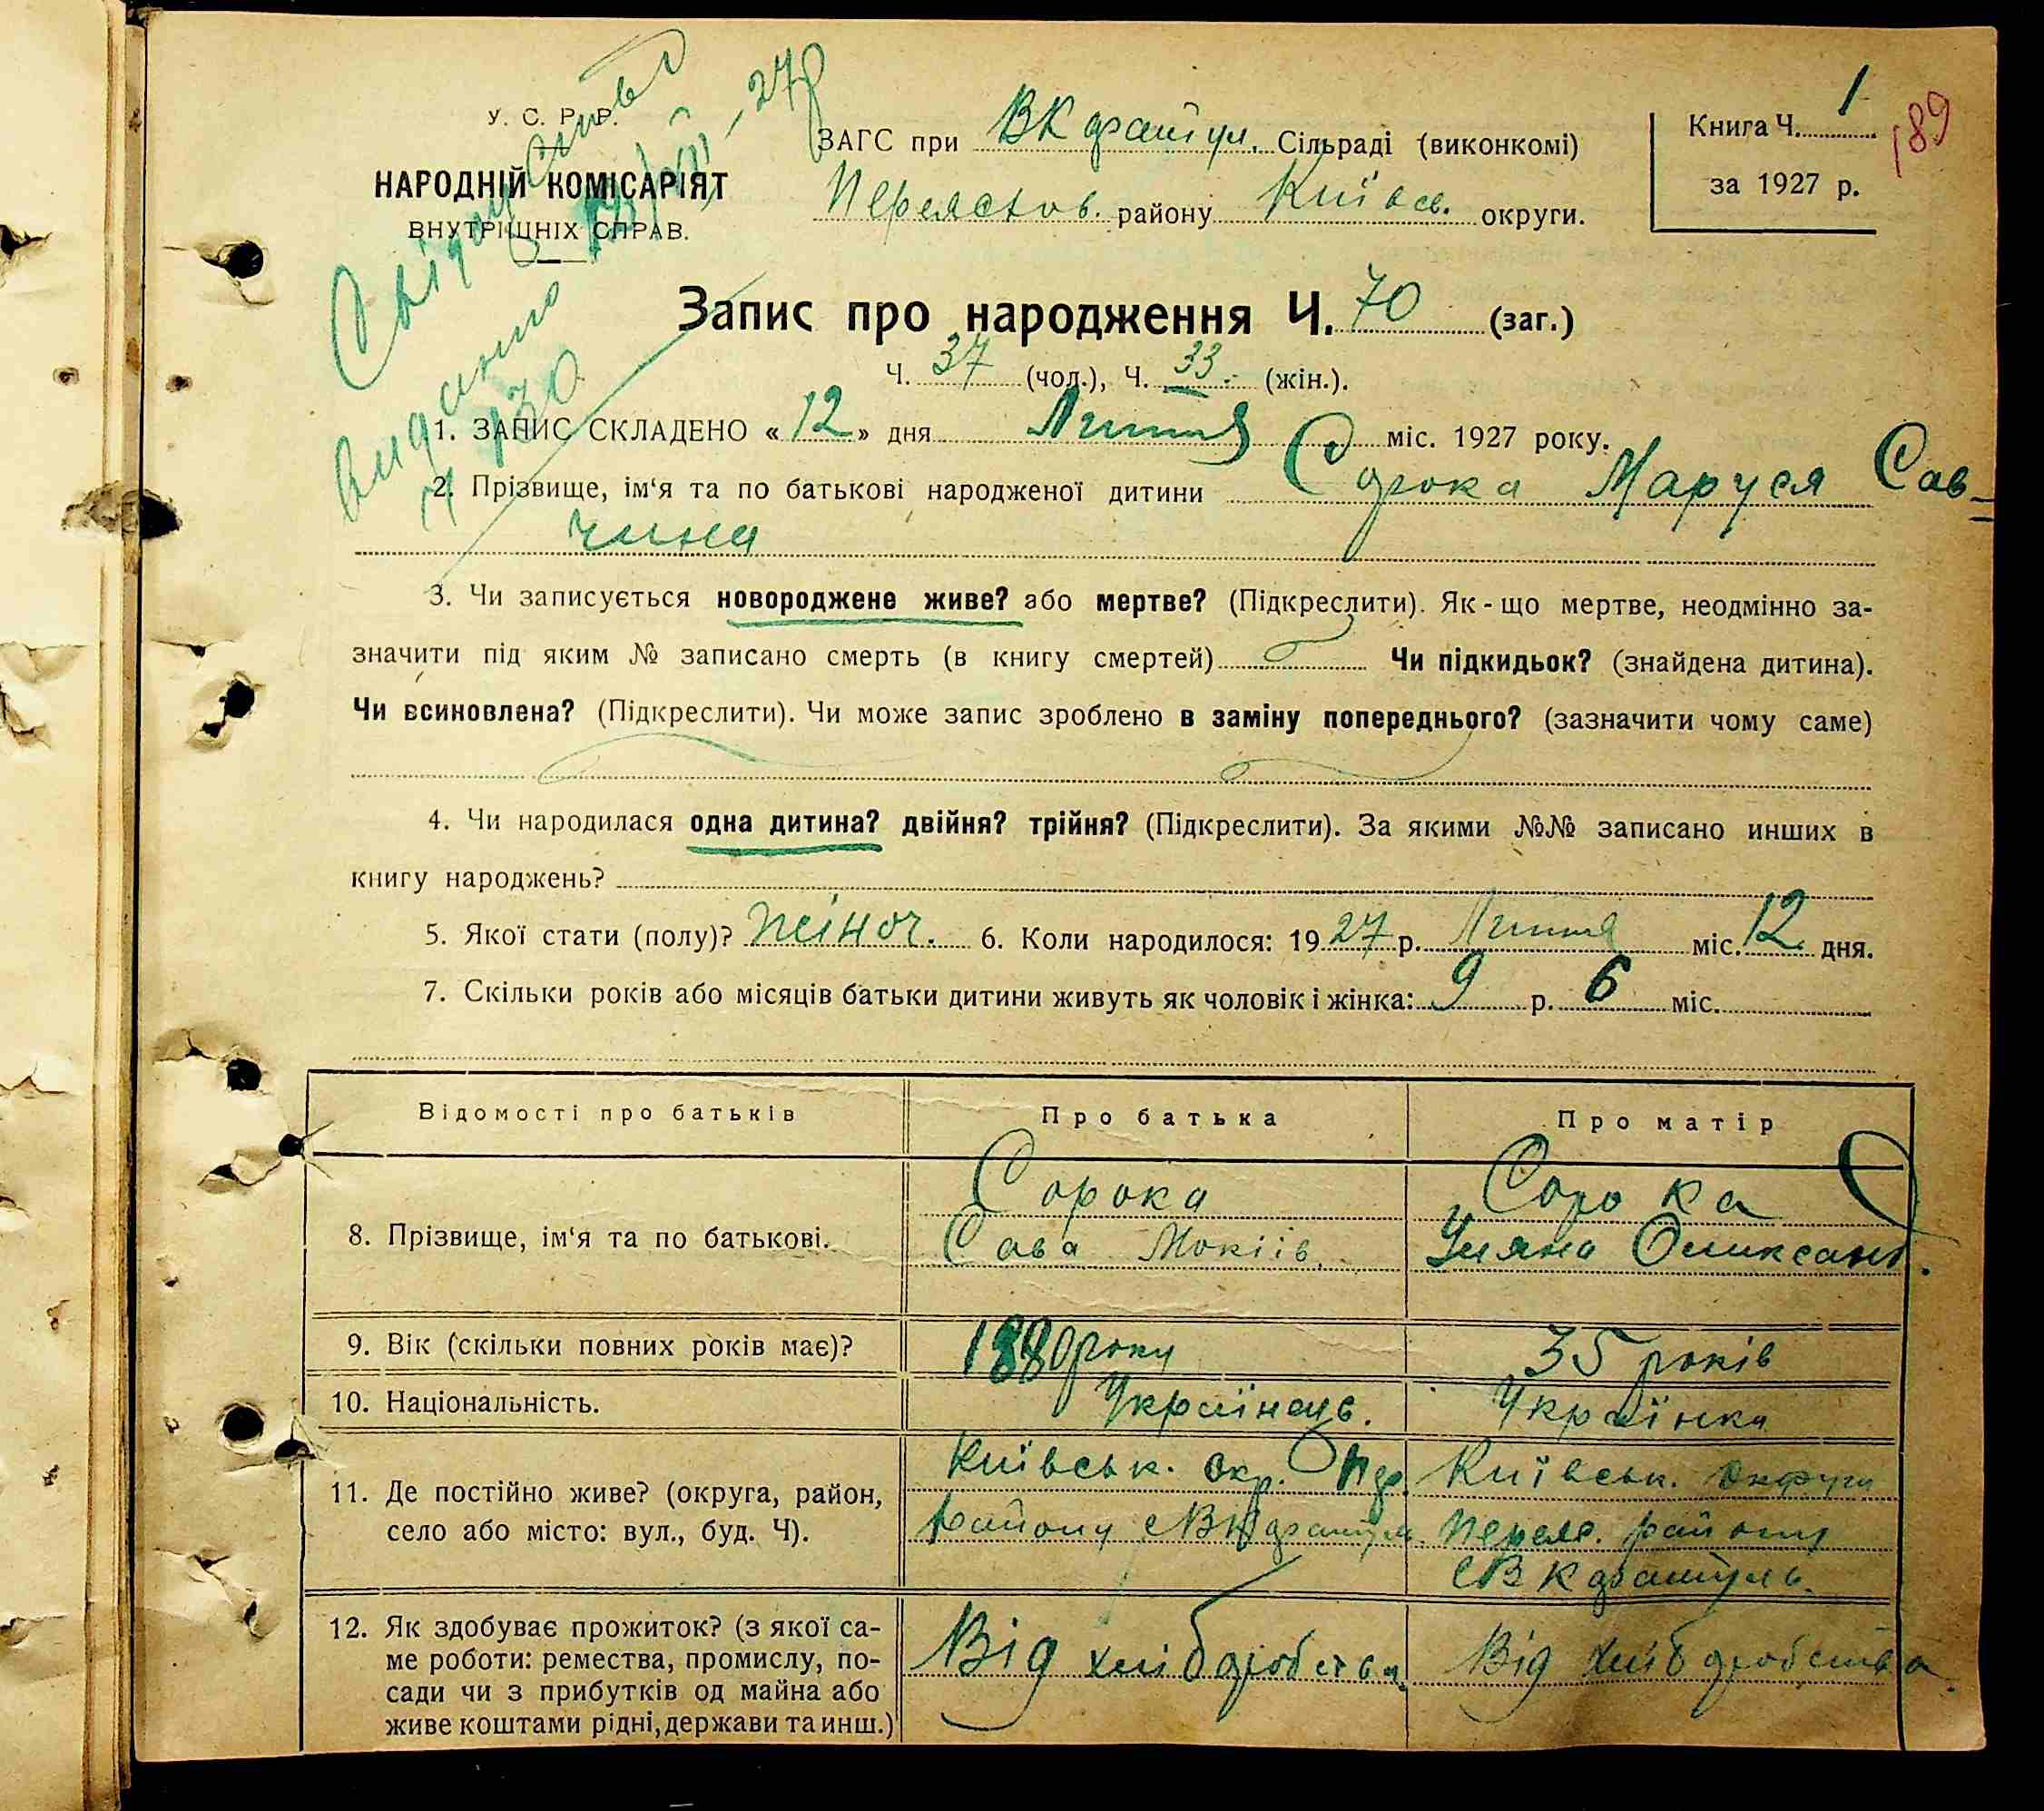 У. С. Р. Р.
НАРОДНІЙ КОМІСАРІЯТ
ВНУТРІШНІХ СПРАВ.
ЗАГС при В Каратул. Сільраді (виконкомі)
Переяслов. району Київсь. округи.
Книга Ч. 1
за 1927 р.
189
видано
Запис про народження Ч. 70 (заг.)
Ч. 37 (чол.), Ч. 33 (жін.).
1. ЗАПИС СКЛАДЕНО « 12 » дня Липня міс. 1927 року.
2. Прізвище, ім‘я та по батькові народженої дитини Сорока Маруся Сав-
чина
3. Чи записується новороджене живе? або мертве? (Підкреслити). Як-що мертве, неодмінно за-
значити під яким № записано смерть (в книгу смертей) Чи підкидьок? (знайдена дитина).
Чи всиновлена? (Підкреслити). Чи може запис зроблено в заміну попереднього? (зазначити чому саме)
4. Чи народилася одна дитина? двійня? трійня? (Підкреслити). За якими №№ записано инших в
книгу народжень?
5. Якої стати (полу)? жіноч. 6. Коли народилося: 1927 р. Липня міс. 12 дня.
7. Скільки років або місяців батьки дитини живуть як чоловік і жінка: 9 р. 6 міс.
Відомості про батьків Про батька Про матір
8. Прізвище, ім‘я та по батькові.
Сорока
Сава Мокіів.
Сорока
Уляна Олександ.
9. Вік (скільки повних років має)? 1880 року 35 років
10. Національність. Українець. Українка
11. Де постійно живе? (округа, район,
село або місто: вул., буд. Ч).
Київськ. окр. Пер.
Району с В Каратул.
Київськ. округи
Переяс. району
с В Каратуль.
12. Як здобуває прожиток? (з якої са-
ме роботи: ремества, промислу, по-
сади чи з прибутків од майна або
живе коштами рідні, держави та инш.)
Від хліборобства,
Від хліборобства